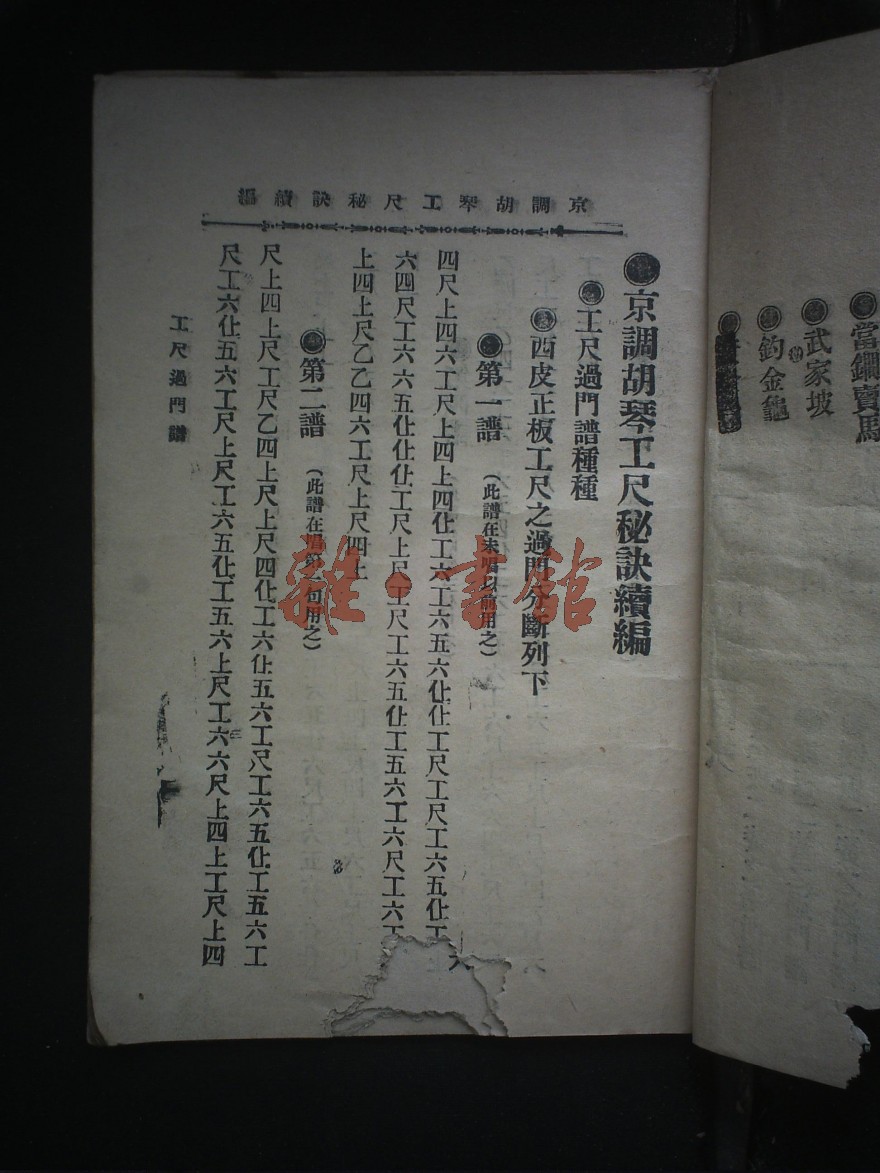 當鐧賣馬
武家坡
釣金龜
京調胡琴工尺秘訣續編
●京調胡琴工尺秘訣續編
●工尺過門譜種種
●西皮正板工尺之過門分斷列下
●第一譜 (此譜在未唱以前用之)
四尺上四六工尺上四上四仩工六工六五六仩仩工尺工尺工六五仩工
六四尺工六六五仩仩仩工尺上尺工尺工六五仩工五六工六尺工六工
上四上尺乙乙四六工尺上尺四上
●第二譜 (此譜在唱第一句用之)
尺上四上尺工尺乙四上尺上尺四仩工六仩五六工尺工六五仩工五六工
尺工六仩五六工尺上尺工六五仩工五六上尺工六六尺上四上工尺上四
工尺過門譜
雜·書館